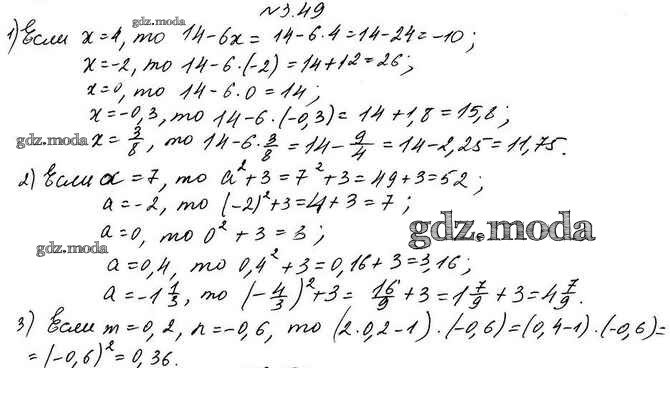 №3.49
gdz.moda
1) Если x=4, то 14-6x = 14-6·4=14-24=-10;
x=-2, то 14-6·(-2) = 14+12=26;
x=0, то 14-6·0=14;
x=-0,3, то 14-6·(-0,3) = 14+1,8=15,8;
gdz.moda x= 3/8, то 14-6·3/8 = 14-9/4 = 14-2,25=11,75.
2) Если a=7, то a²+3=7²+3=49+3=52;
a=-2, то (-2)²+3=4+3=7;
a=0, то 0²+3=3;
gdz.moda
gdz.moda
a=0,4, то 0,4²+3=0,16+3=3,16;
a=-1 1/3, то (-4/3)²+3= 16/9+3=1 7/9+3=4 7/9.
3) Если m=0,2, n=-0,6, то (2·0,2-1)·(-0,6)=(0,4-1)·(-0,6)=
=(-0,6)²=0,36.